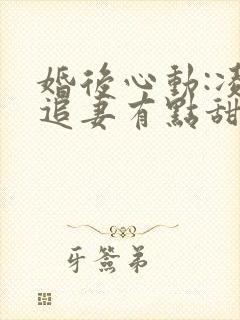 婚後心動:凌
追妻有點甜
牙簽弟